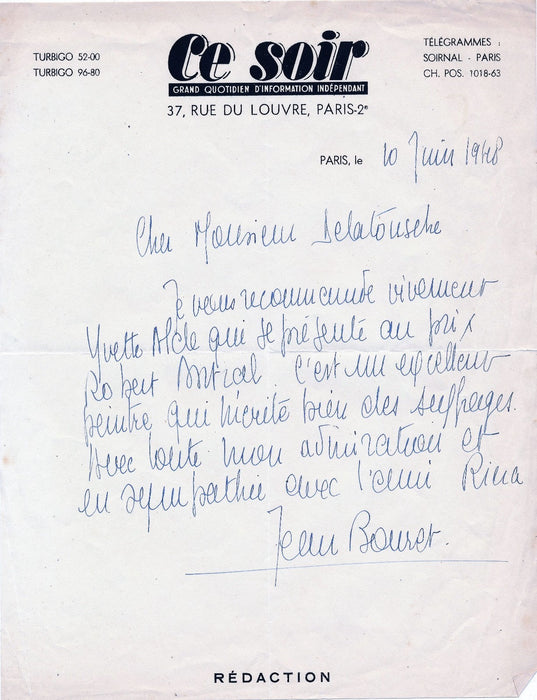 TURBIGO 52-00
TURBIGO 96-80
Ce soir
GRAND QUOTIDIEN D'INFORMATION INDÉPENDANT
37, RUE DU LOUVRE, PARIS-2e
TÉLÉGRAMMES :
SOIRNAL - PARIS
CH. POS. 1018-63
PARIS, le 10 Juin 1948
Cher Monsieur Delatousche
Je vous recommande vivement
Yvette Alde qui se présente au prix
Robert Antral. C'est un excellent
peintre qui mérite bien des suffrages.
Avec toute mon admiration et
en sympathie avec l'ami Riea
Jean Bouret.
RÉDACTION